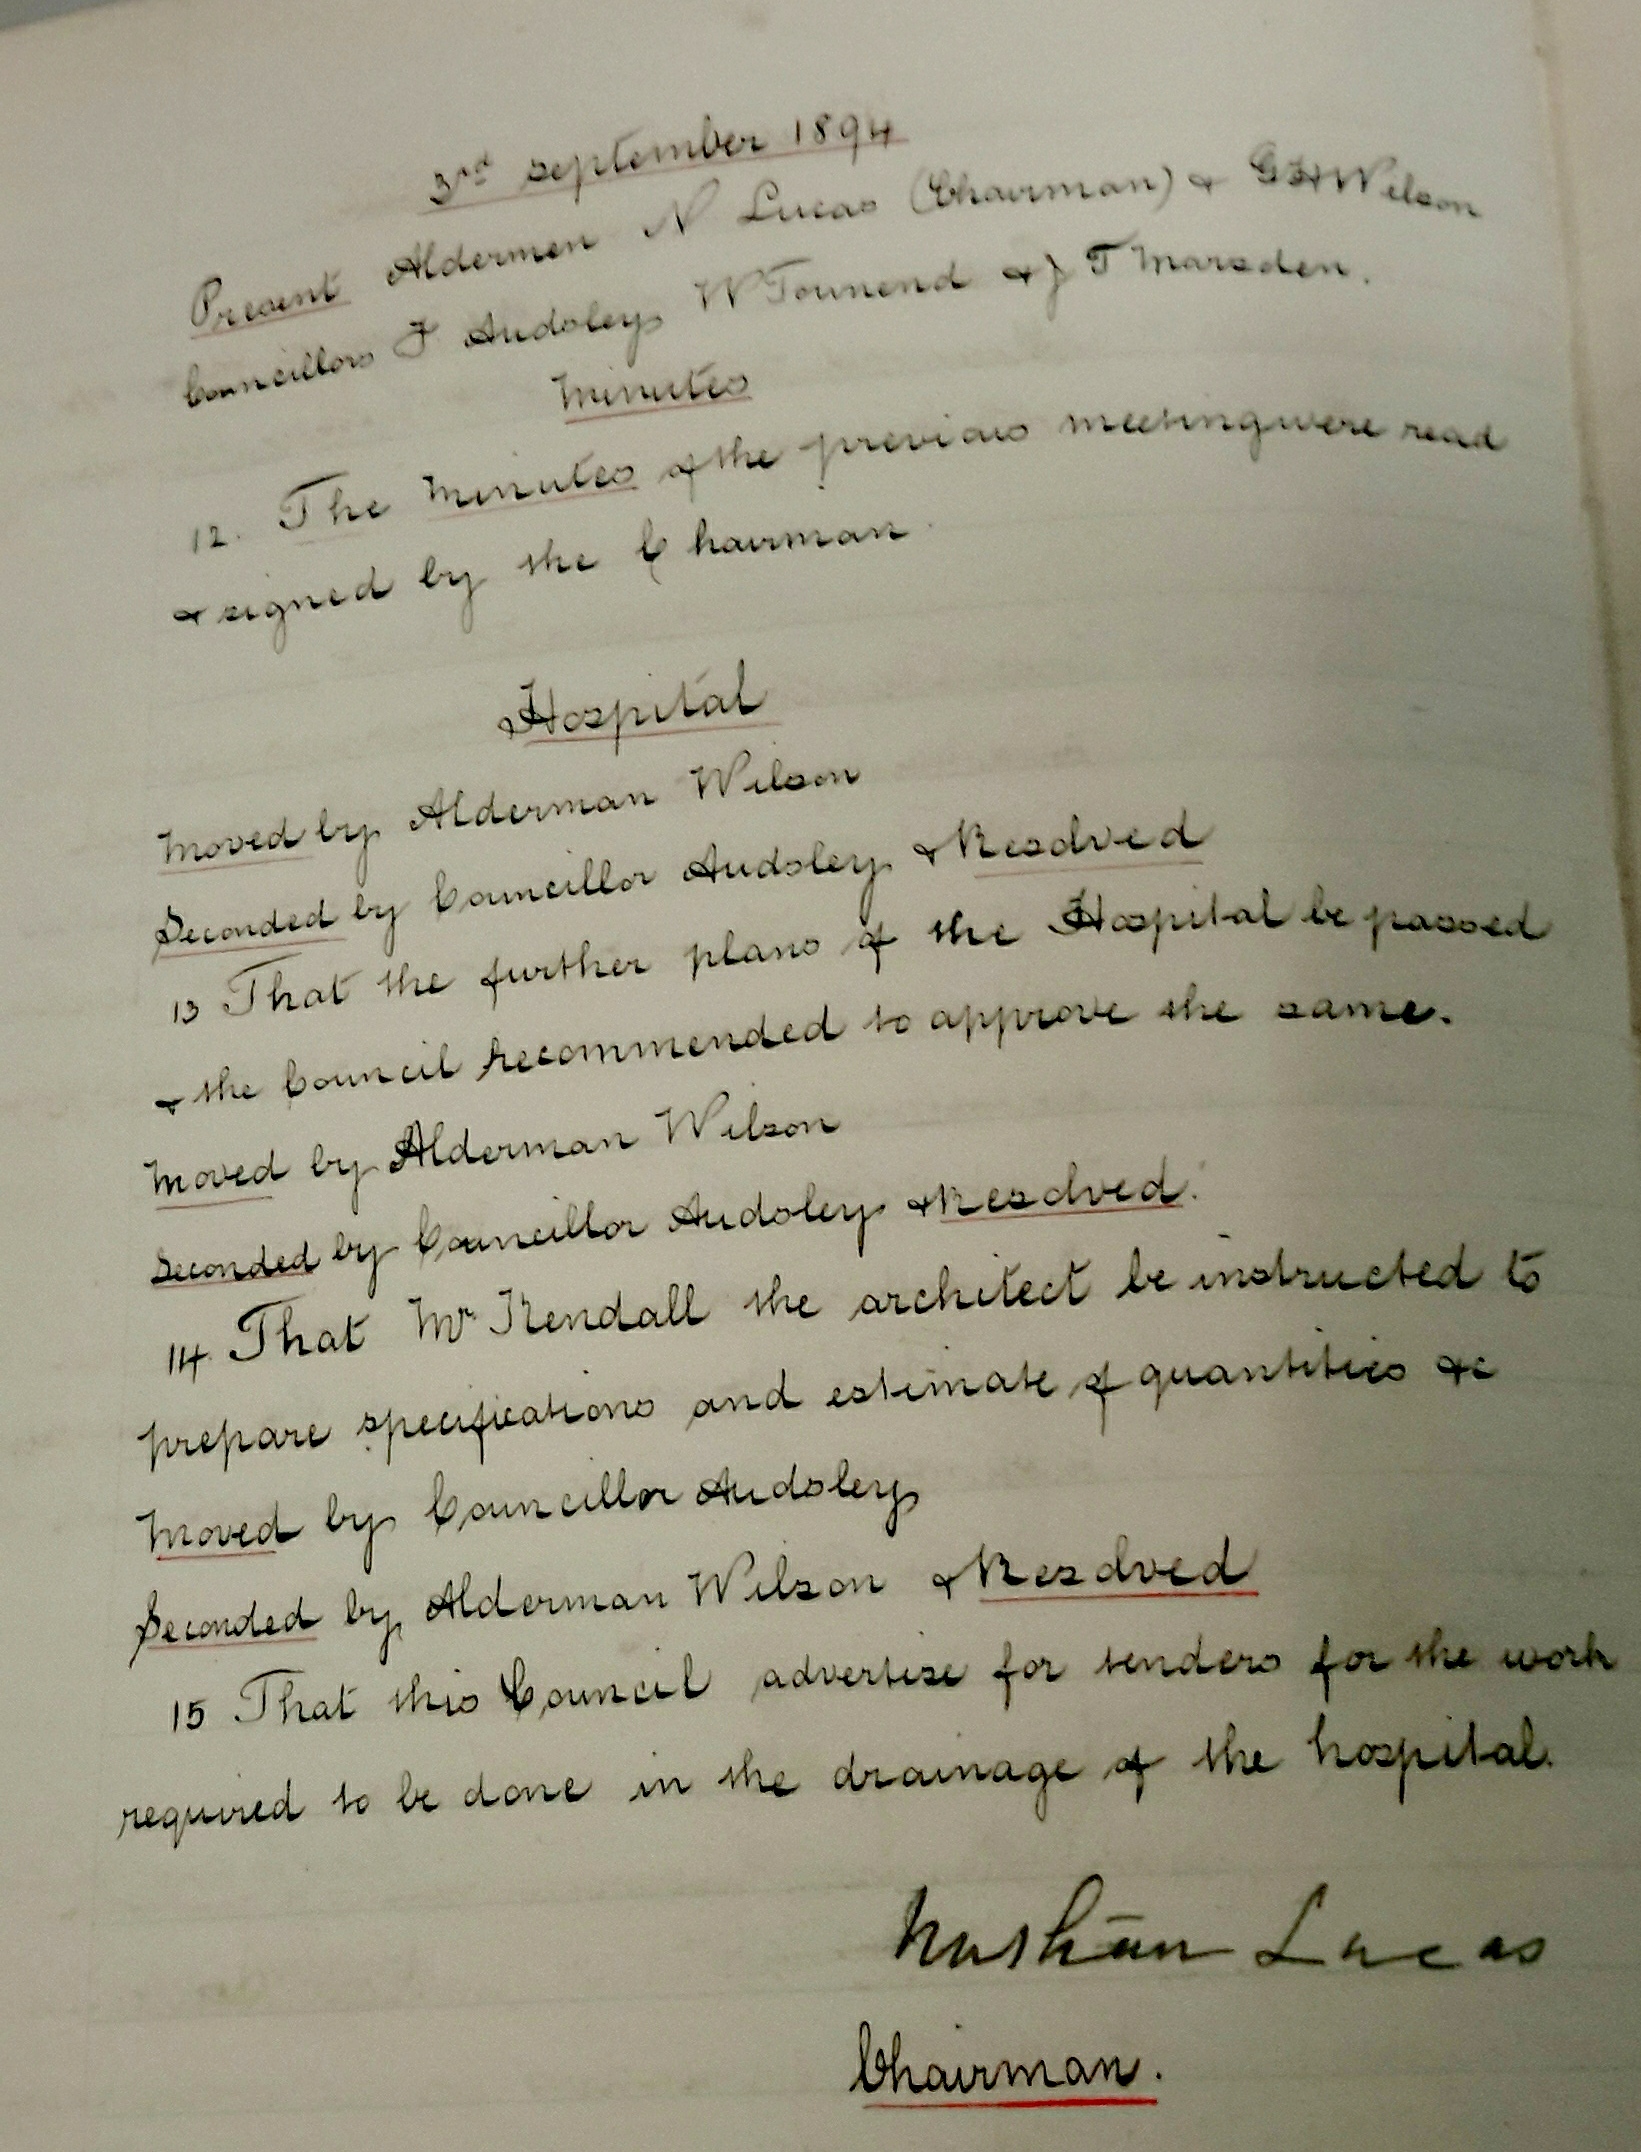 3rd September 1894
Present Aldermen N Lucas (Chairman) & G H Wilson
Councillors F Audsley W Townend & J T Marsden.
Minutes
12. The Minutes of the previous meeting were read
& signed by the Chairman.
Hospital
Moved by Alderman Wilson
Seconded by Councillor Audsley & Resolved
13 That the further plans of the Hospital be passed
& the Council recommended to approve the same.
Moved by Alderman Wilson
Seconded by Councillor Audsley & Resolved.
14. That Mr Kendall the architect be instructed to
prepare specifications and estimate of quantities &c
Moved by Councillor Audsley
Seconded by Alderman Wilson & Resolved
15 That this Council advertise for tenders for the work
required to be done in the drainage of the hospital.
Nathan Lucas
Chairman.